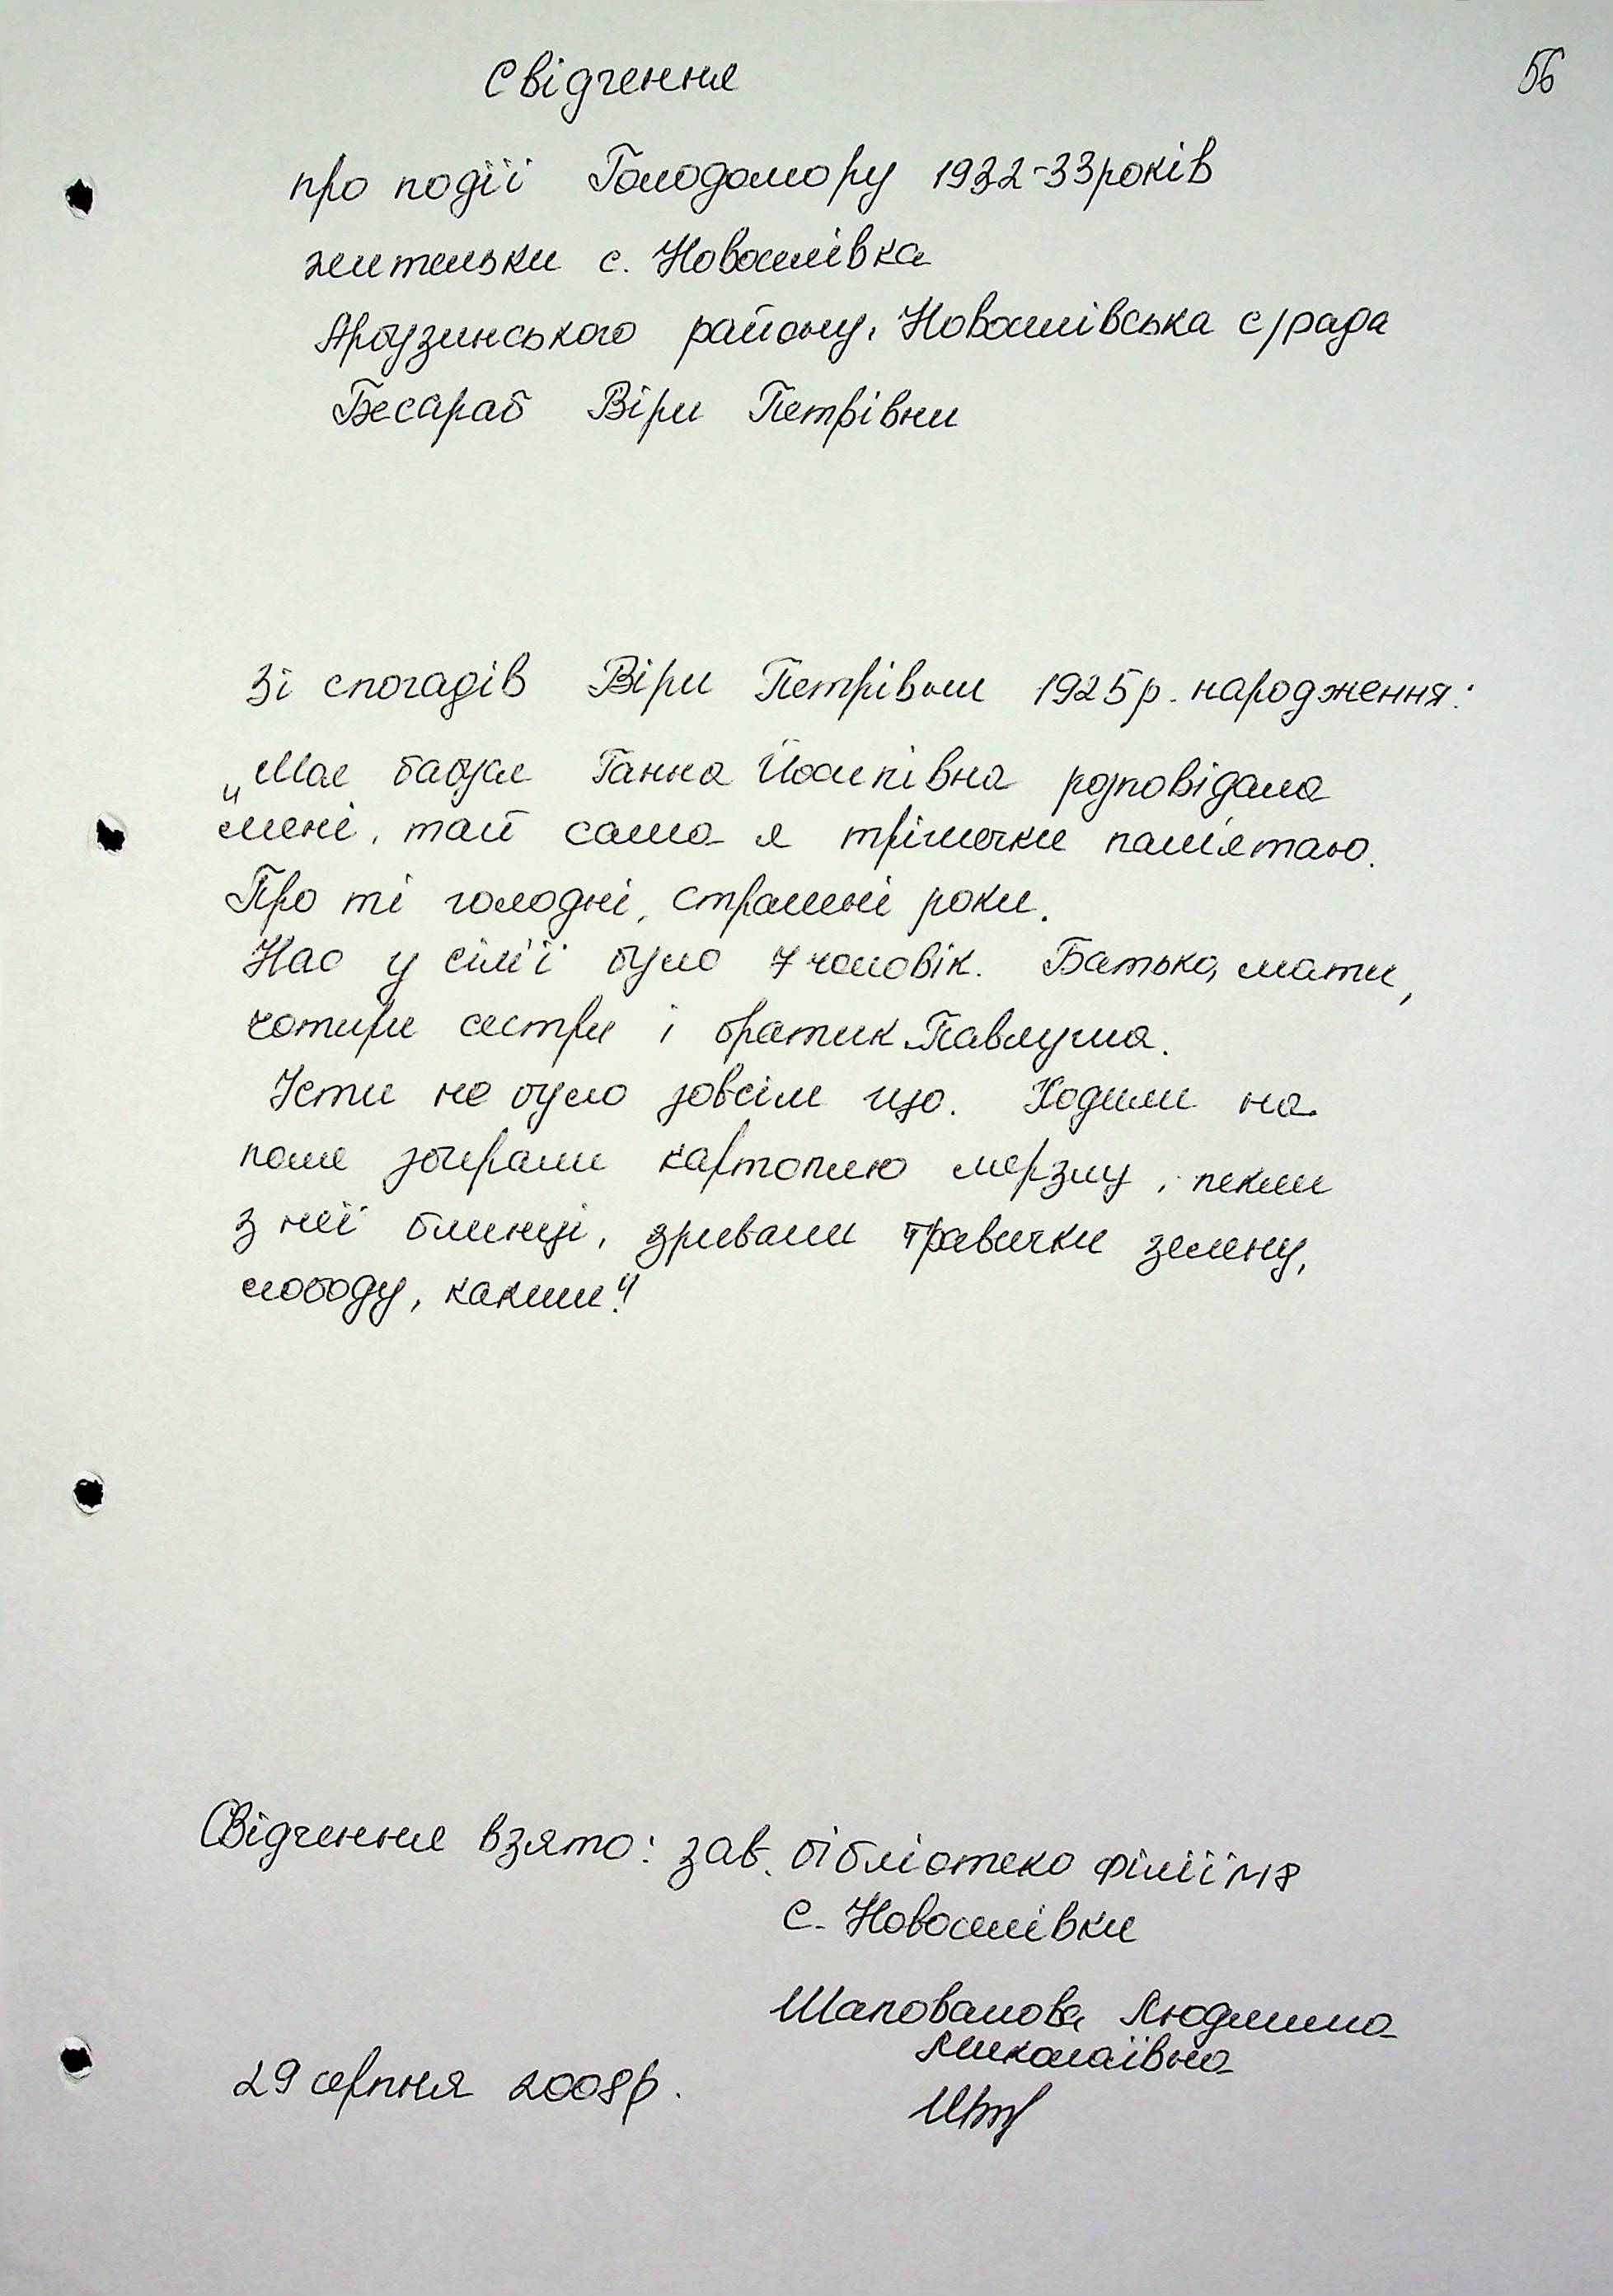 56
Свідчення
про події Голодомору 1932-33 років
жительки с. Новоселівка
Арбузинського району, Новоселівська с/рада
Бесараб Віри Петрівни
Зі спогадів Віри Петрівни 1925 р. народження:
„Моя бабуся Ганна Йосипівна розповідала
мені, тай сама я трішечки пам'ятаю.
Про ті голодні, страшні роки.
Нас у сім'ї було 7 чоловік. Батько, мати,
чотири сестри і братик Павлуша.
Їсти не було зовсім що. Ходили на
поле збирали картоплю мерзлу, пекли
з неї блинці, зривали травички зелену,
лободу, какиш."
Свідчення взято: зав. бібліотеко філії №8
с. Новоселівки
Шаповалова Людмила
Миколаївна
29 серпня 2008 р.